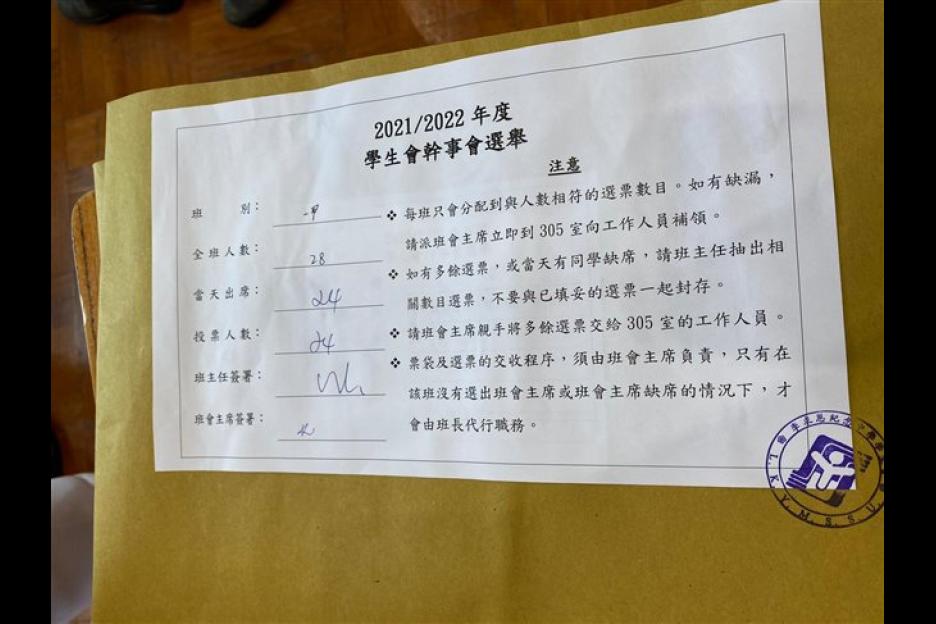 2021/2022 年度
學生會幹事會選舉
注意
班 別：一甲
全班人數：28
當天出席：24
投票人數：24
班主任簽署：
班會主席簽署：
❖ 每班只會分配到與人數相符的選票數目。如有缺漏，
請派班會主席立即到 305 室向工作人員補領。
❖ 如有多餘選票，或當天有同學缺席，請班主任抽出相
關數目選票，不要與已填妥的選票一起封存。
❖ 請班會主席親手將多餘選票交給 305 室的工作人員。
❖ 票袋及選票的交收程序，須由班會主席負責，只有在
該班沒有選出班會主席或班會主席缺席的情況下，才
會由班長代行職務。
L.K.Y.M.S.S.U.